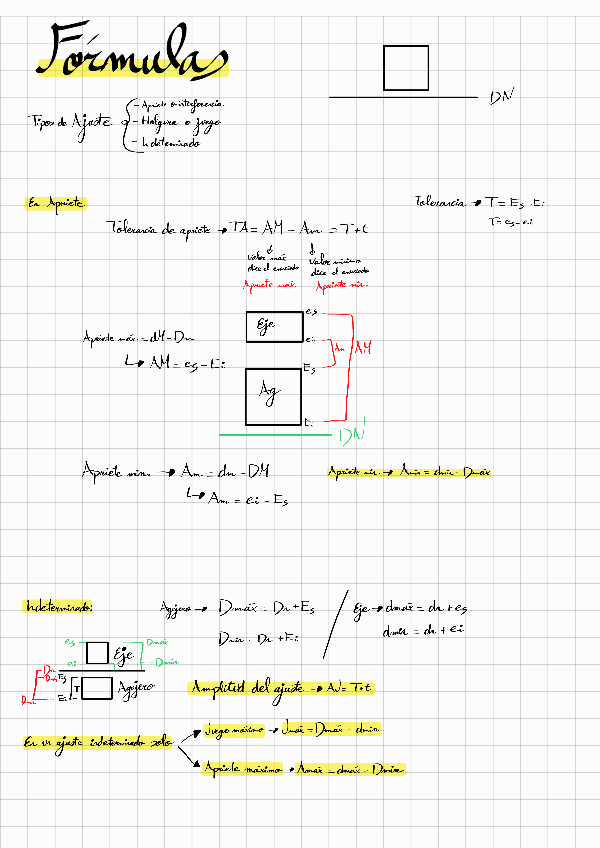 Fórmulas
DN
Tipos de Ajuste
- Apriete o interferencia.
- Holgura o juego
- Indeterminado
En Apriete.
Tolerancia → T = Es - Ei
T = es - ei
Tolerancia de apriete → TA = AM - Am = T + t
Valor máx
dice el enunciado
Valor mínimo
dice el enunciado
Apriete máx.
Apriete min.
es
Eje
ei
Am
AM
Es
Ag
Ei
DN
Apriete máx. = dM - Dm
↳ AM = es - Ei
Apriete min. → Am = dm - DM
↳ Am = ei - Es
Apriete min. → Amin = dmin - Dmáx
Indeterminado:
Agujero → Dmáx = Dn + Es
Dmin = Dn + Ei
Eje → dmáx = dn + es
dmin = dn + ei
es
Eje
Dmáx
ei
Dmin
Es
T
Agujero
Ei
Amplitud del ajuste → AJ = T + t
En un ajuste indeterminado solo
Juego máximo → Jmáx = Dmáx - dmin
Apriete máximo → Amáx = dmáx - Dmin